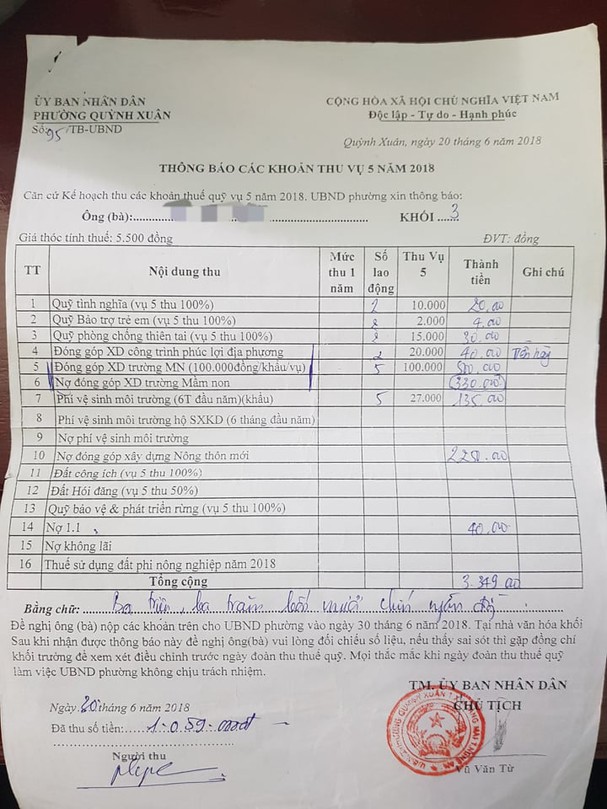 ỦY BAN NHÂN DÂN
PHƯỜNG QUỲNH XUÂN
Số: 95/TB-UBND
CỘNG HÒA XÃ HỘI CHỦ NGHĨA VIỆT NAM
Độc lập - Tự do - Hạnh phúc
Quỳnh Xuân, ngày 20 tháng 6 năm 2018
THÔNG BÁO CÁC KHOẢN THU VỤ 5 NĂM 2018
Căn cứ Kế hoạch thu các khoản thuế quỹ vụ 5 năm 2018. UBND phường xin thông báo:
Ông (bà):.......... KHỐI ..3..
Giá thóc tính thuế: 5.500 đồng ĐVT: đồng
TT Nội dung thu Mức thu 1 năm Số lao động Thu Vụ 5 Thành tiền Ghi chú
1 Quỹ tình nghĩa (vụ 5 thu 100%) 2 10.000 20.00
2 Quỹ Bảo trợ trẻ em (vụ 5 thu 100%) 2 2.000 4.00
3 Quỹ phòng chống thiên tai (vụ 5 thu 100%) 2 15.000 30.00
4 Đóng góp XD công trình phúc lợi địa phương 2 20.000 40.00
5 Đóng góp XD trường MN (100.000đồng/khẩu/vụ) 5 100.000 500.00
6 Nợ đóng góp XD trường Mầm non (330.00)
7 Phí vệ sinh môi trường (6T đầu năm)(khẩu) 5 27.000 135.00
8 Phí vệ sinh môi trường hộ SXKD (6 tháng đầu năm)
9 Nợ phí vệ sinh môi trường
10 Nợ đóng góp xây dựng Nông thôn mới
11 Đất công ích (vụ 5 thu 100%)
12 Đất Hói đăng (vụ 5 thu 50%)
13 Quỹ bảo vệ & phát triển rừng (vụ 5 thu 100%)
14 Nợ 1.1 40.00
15 Nợ không lãi
16 Thuế sử dụng đất phi nông nghiệp năm 2018
Tổng cộng 3.349.00
Bằng chữ: Ba triệu, ba trăm bốn mươi chín ngàn đ
Đề nghị ông (bà) nộp các khoản trên cho UBND phường vào ngày 30 tháng 6 năm 2018. Tại nhà văn hóa khối
Sau khi nhận được thông báo này đề nghị ông(bà) vui lòng đối chiếu số liệu, nếu thấy sai sót thì gặp đồng chí
khối trưởng để xem xét điều chỉnh trước ngày đoàn thu thuế quỹ. Mọi thắc mắc khi ngày đoàn thu thuế quỹ
làm việc UBND phường không chịu trách nhiệm.
Ngày 30 tháng 6 năm 2018
Đã thu số tiền: 1.059
Người thu
TM. ỦY BAN NHÂN DÂN
CHỦ TỊCH
Vũ Văn Từ